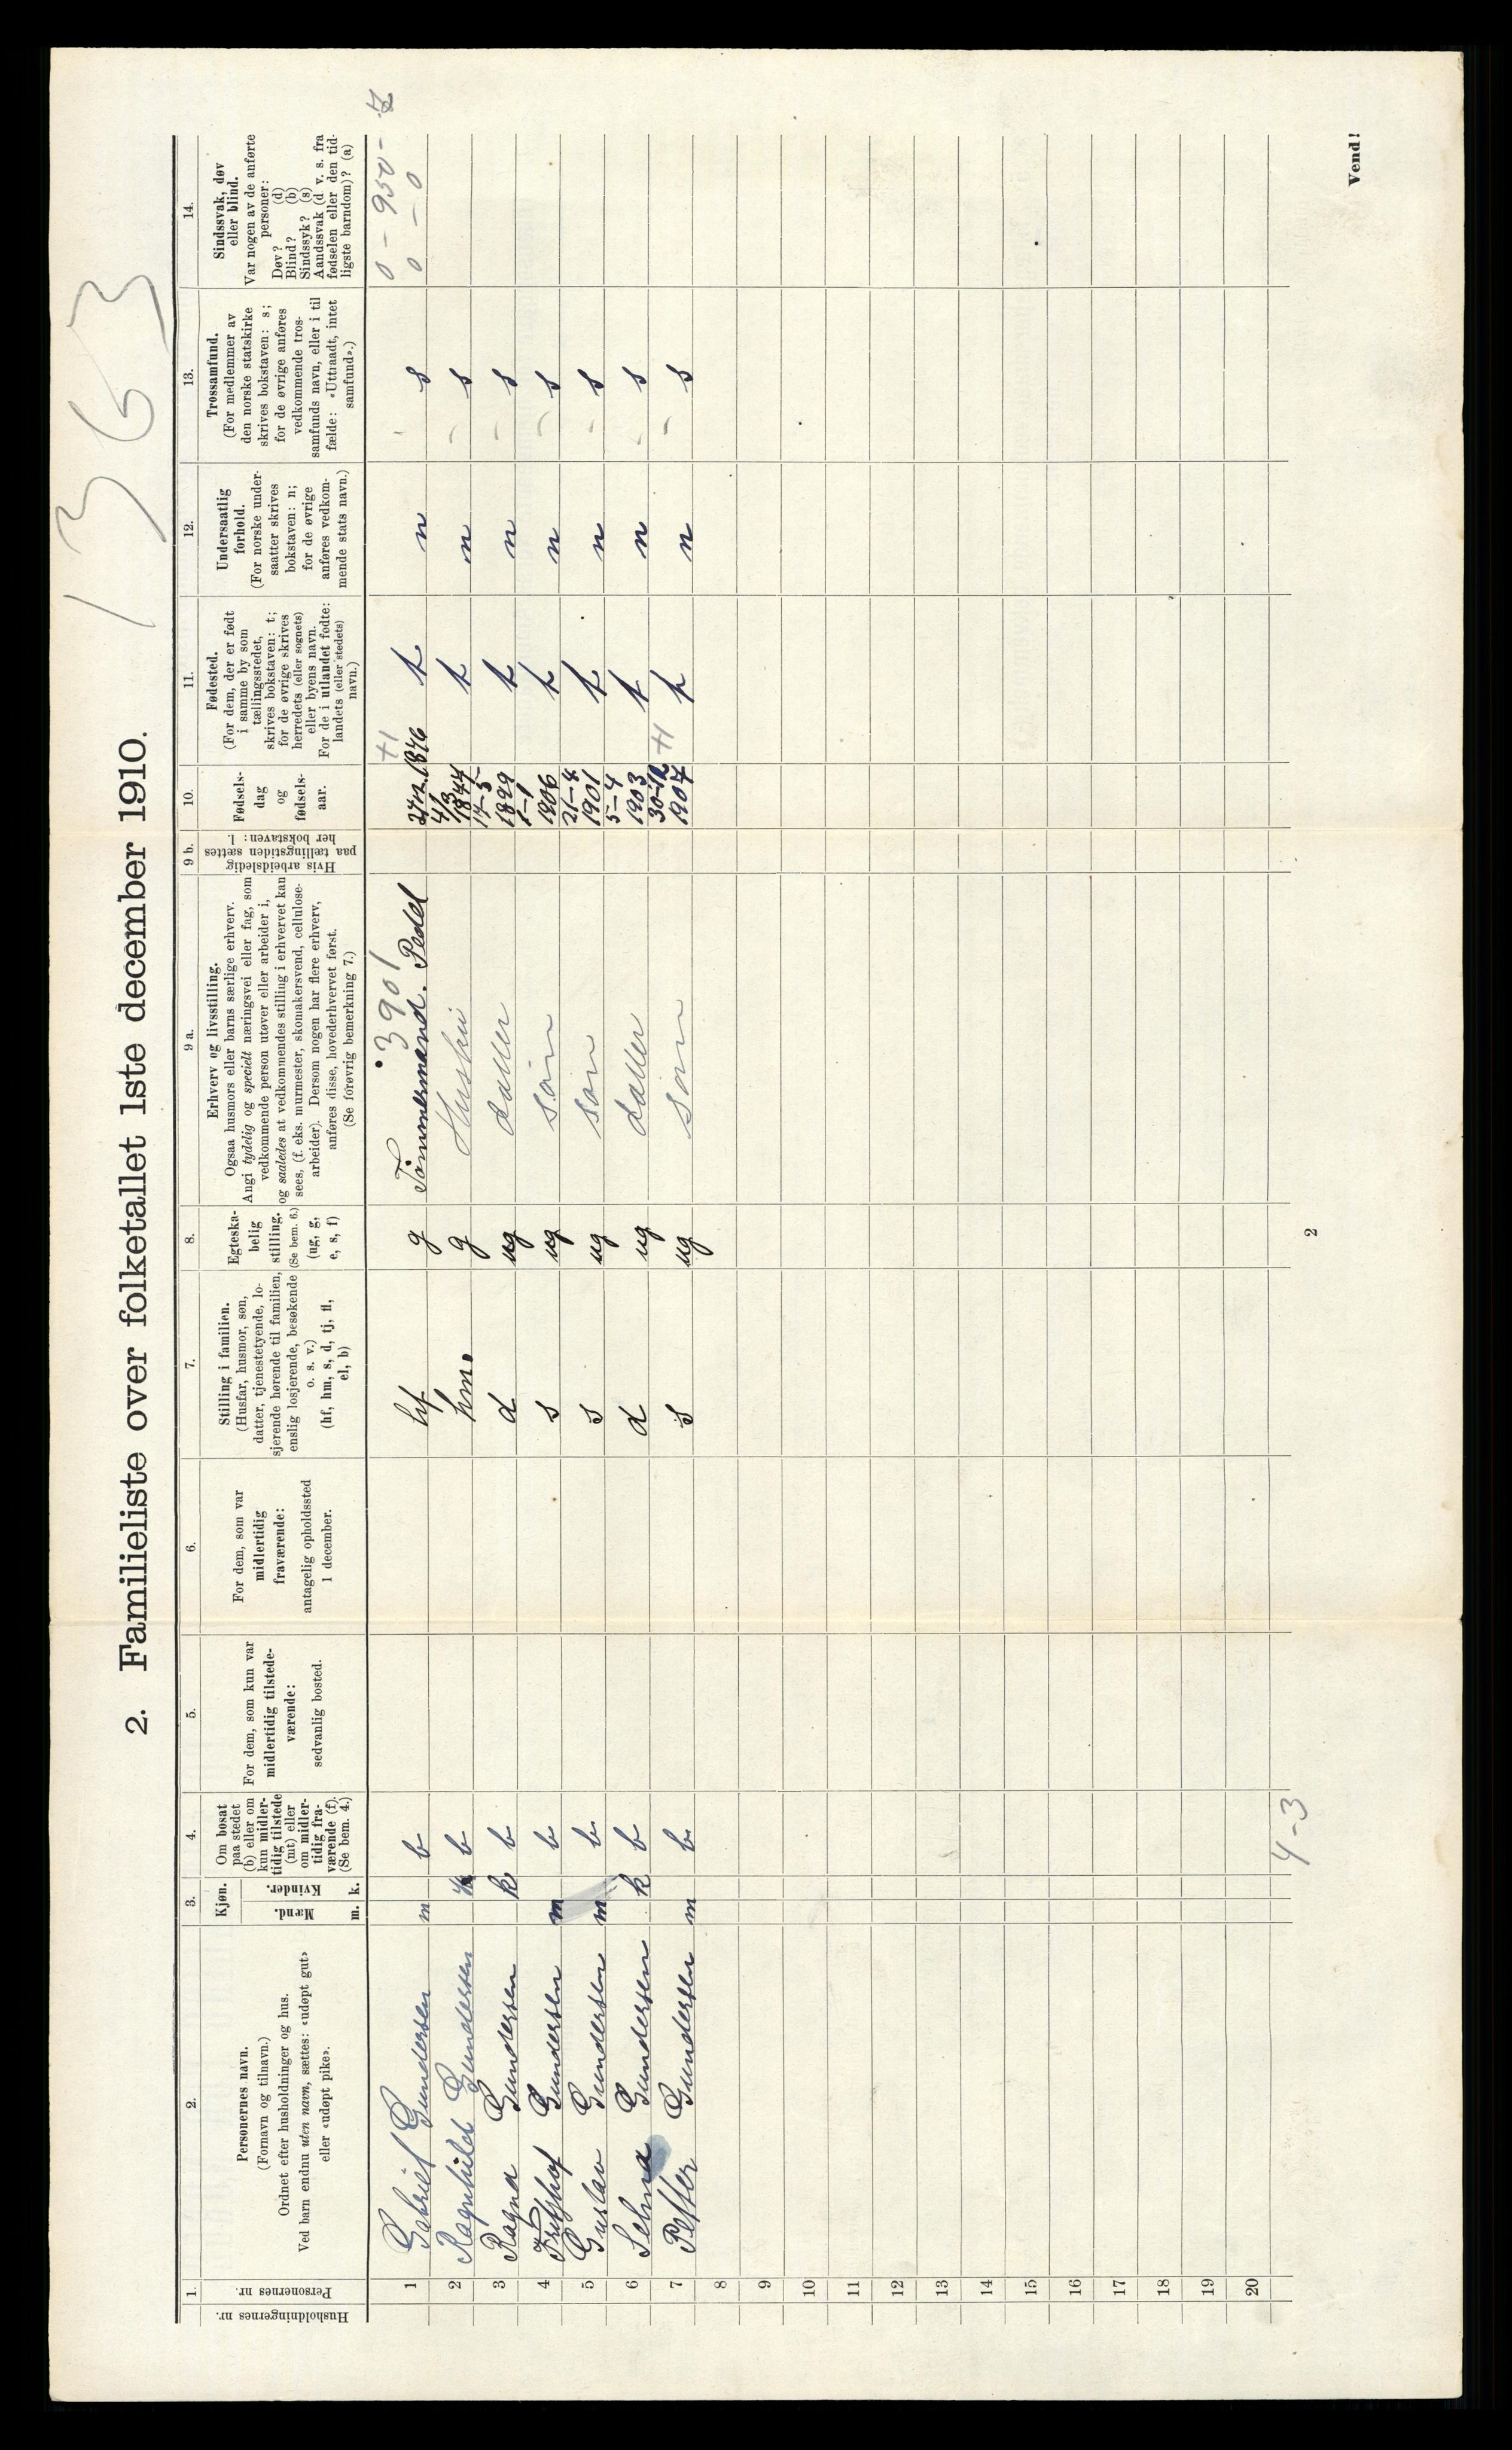 1363
2. Familieliste over folketallet 1ste december 1910.
Husholdningernes nr.
1.
Personernes nr.
2.
Personernes navn.
(Fornavn og tilnavn.)
Ordnet efter husholdninger og hus.
Ved barn endnu uten navn, sættes: «udøpt gut»
eller «udøpt pike».
3.
Kjøn.
Mænd.
Kvinder.
m. k.
4.
Om bosat
paa stedet
(b) eller om
kun midler-
tidig tilstede
(mt) eller
om midler-
tidig fra-
værende (f).
(Se bem. 4.)
5.
For dem, som kun var
midlertidig tilstede-
værende:
sedvanlig bosted.
6.
For dem, som var
midlertidig
fraværende:
antagelig opholdssted
1 december.
7.
Stilling i familien.
(Husfar, husmor, søn,
datter, tjenestetyende, lo-
sjerende hørende til familien,
enslig losjerende, besøkende
o. s. v.)
(hf, hm, s, d, tj, fl,
el, b)
8.
Egteska-
belig
stilling.
(Se bem. 6.)
(ug, g,
e, s, f)
9 a.
Erhverv og livsstilling.
Ogsaa husmors eller barns særlige erhverv.
Angi tydelig og specielt næringsvei eller fag, som
vedkommende person utøver eller arbeider i,
og saaledes at vedkommendes stilling i erhvervet kan
sees, (f. eks. murmester, skomakersvend, cellulose-
arbeider). Dersom nogen har flere erhverv,
anføres disse, hovederhvervet først.
(Se forøvrig bemerkning 7.)
9 b.
Hvis arbeidsledig
paa tællingstiden sættes
her bokstaven: l.
10.
Fødsels-
dag
og
fødsels-
aar.
11.
Fødested.
(For dem, der er født
i samme by som
tællingsstedet,
skrives bokstaven: t;
for de øvrige skrives
herredets (eller sognets)
eller byens navn.
For de i utlandet fødte:
landets (eller stedets)
navn.)
12.
Undersaatlig
forhold.
(For norske under-
saatter skrives
bokstaven: n;
for de øvrige
anføres vedkom-
mende stats navn.)
13.
Trossamfund.
(For medlemmer av
den norske statskirke
skrives bokstaven: s;
for de øvrige anføres
vedkommende tros-
samfunds navn, eller i til
fælde: «Uttraadt, intet
samfund».)
14.
Sindssvak, døv
eller blind.
Var nogen av de anførte
personer:
Døv? (d)
Blind? (b)
Sindssyk? (s)
Aandssvak (d. v. s. fra
fødselen eller den tid-
ligste barndom)? (a)
3901 +1 0 – 950 –
0 – 0
1 Gabriel Gundersen m b hf g Tømmermand. Pedel 1876 t n s
2 Ragnhild Gundersen k b hm. g Hustru 4/3 1874 t n s
3 Ragna Gundersen k b d ug datter 17–5 1899 t n s
4 Fritjhof Gundersen m b s ug søn 1–1 1906 t n s
5 Gustav Gundersen m b s ug søn 21–8 1901 t n s
6 Selma Gundersen k b d ug datter 5–4 1903 t n s
7 Petter Gundersen m b s ug søn 30–12 1907 +1 t n s
8
9
10
11
12
13
14
15
16
17
18
19
20
4-3
2
Vend!